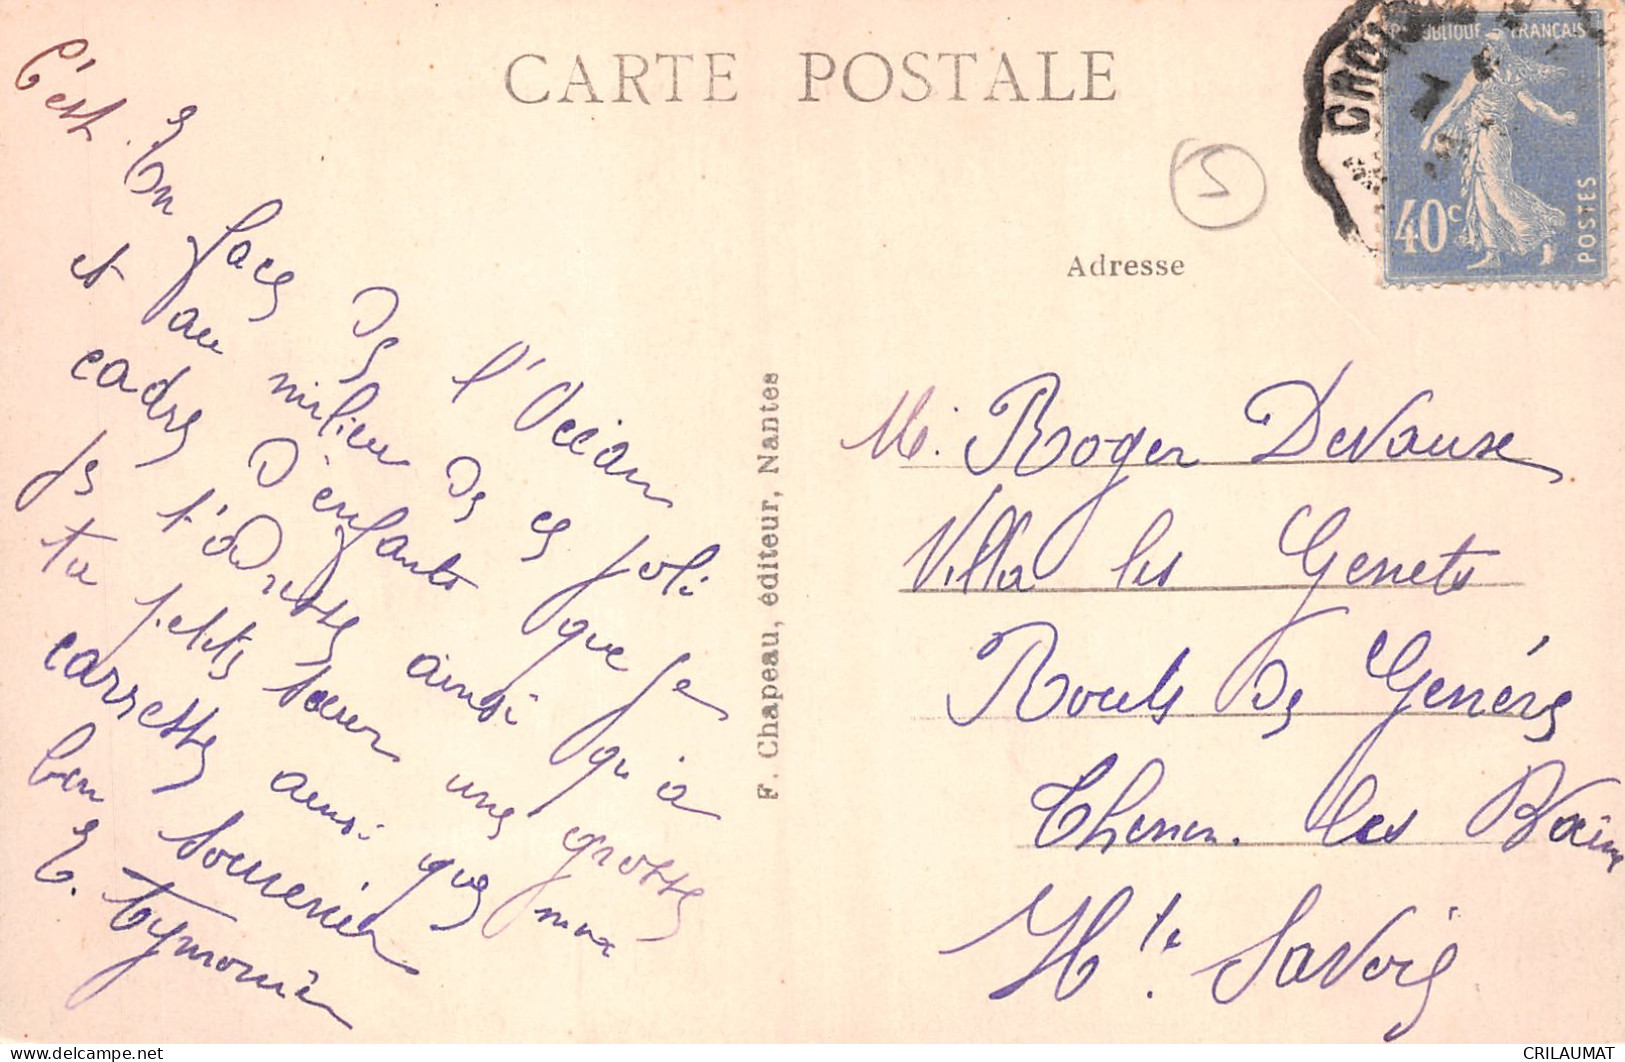 CARTE POSTALE
RÉPUBLIQUE FRANÇAISE
40c
POSTES
5
Adresse
C'est
En face de l'Océan
et au milieu de ce joli
cadre d'enfants que je
je t'adresse ainsi qu'a
ta petite sœur une grosse
caresse ainsi que mon
bon souvenir
E.
F. Chapeau, éditeur, Nantes
M. Roger Devaux
Villa les Genets
Route de Genève
Thonon. les Bains
Hte Savoie
delcampe.net
CRILAUMAT